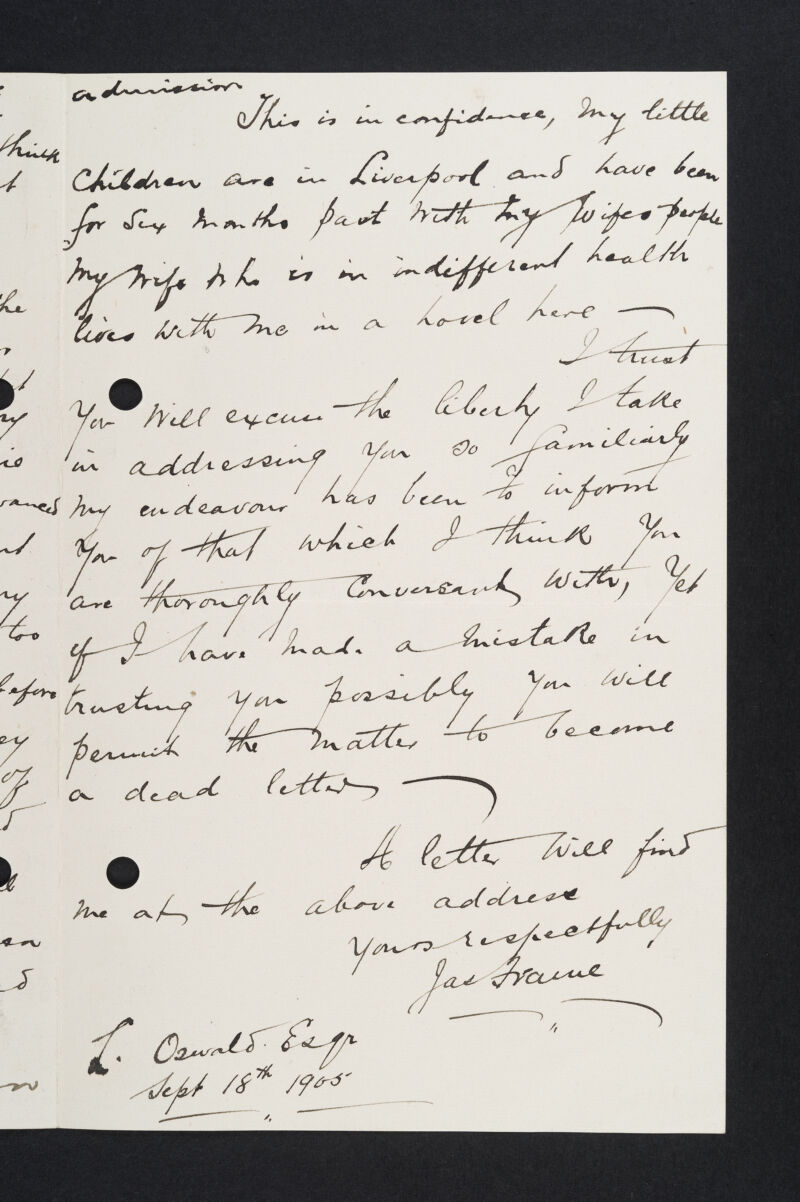 admission
This is in confidence, My little
Children are in Liverpool and have been
for Six Months past with my Wifes people
My Wife who is in indifferent health
lives with me in a hovel here —
I trust
You Will excuse the liberty I take
in addressing you so familiarly
my endeavour has been to inform
You of that which I think You
are thoroughly Conversant with, Yet
if I have made a mistake in
trusting you possibly you will
permit the matter to become
a dead letter —
A letter Will find
me at the above address
Yours respectfully
Jas Frame
L. Oswald Esqr
Sept 18th 1905
think
the
ny
vanced
ny
too
before
ey
of
son